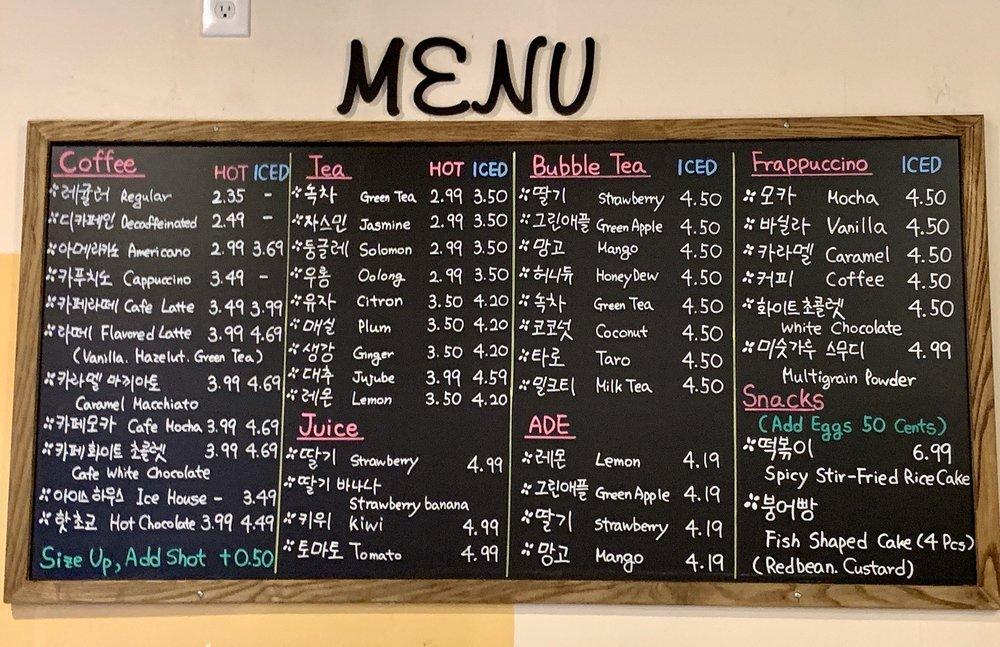 MENU
Coffee HOT ICED
레귤러 Regular 2.35 -
디카페인 Decaffeinated 2.49 -
아메리카노 Americano 2.99 3.69
카푸치노 Cappuccino 3.49 -
카페라떼 Cafe Latte 3.49 3.99
라떼 Flavored Latte 3.99 4.69
(Vanilla. Hazelut. Green Tea)
카라멜 마키아토 3.99 4.69
Caramel Macchiato
카페모카 Cafe Mocha 3.99 4.69
카페 화이트 초콜렛 3.99 4.69
Cafe White Chocolate
아이스 하우스 Ice House - 3.49
핫초코 Hot Chocolate 3.99 4.49
Size Up, Add Shot +0.50
Tea HOT ICED
녹차 Green Tea 2.99 3.50
자스민 Jasmine 2.99 3.50
둥글레 Solomon 2.99 3.50
우롱 Oolong 2.99 3.50
유자 Citron 3.50 4.20
매실 Plum 3.50 4.20
생강 Ginger 3.50 4.20
대추 Jujube 3.99 4.59
레몬 Lemon 3.50 4.20
Juice
딸기 Strawberry 4.99
딸기 바나나
Strawberry banana
키위 kiwi 4.99
토마토 Tomato 4.99
Bubble Tea ICED
딸기 Strawberry 4.50
그린애플 Green Apple 4.50
망고 Mango 4.50
허니듀 Honey Dew 4.50
녹차 Green Tea 4.50
코코넛 Coconut 4.50
타로 Taro 4.50
밀크티 Milk Tea 4.50
ADE
레몬 Lemon 4.19
그린애플 Green Apple 4.19
딸기 Strawberry 4.19
망고 Mango 4.19
Frappuccino ICED
모카 Mocha 4.50
바닐라 Vanilla 4.50
카라멜 Caramel 4.50
커피 Coffee 4.50
화이트 초콜렛 4.50
White Chocolate
미숫가루 스무디 4.99
Multigrain Powder
Snacks
(Add Eggs 50 Cents)
떡볶이 6.99
Spicy Stir-Fried Rice Cake
붕어빵
Fish Shaped Cake (4 Pcs)
(Redbean. Custard)